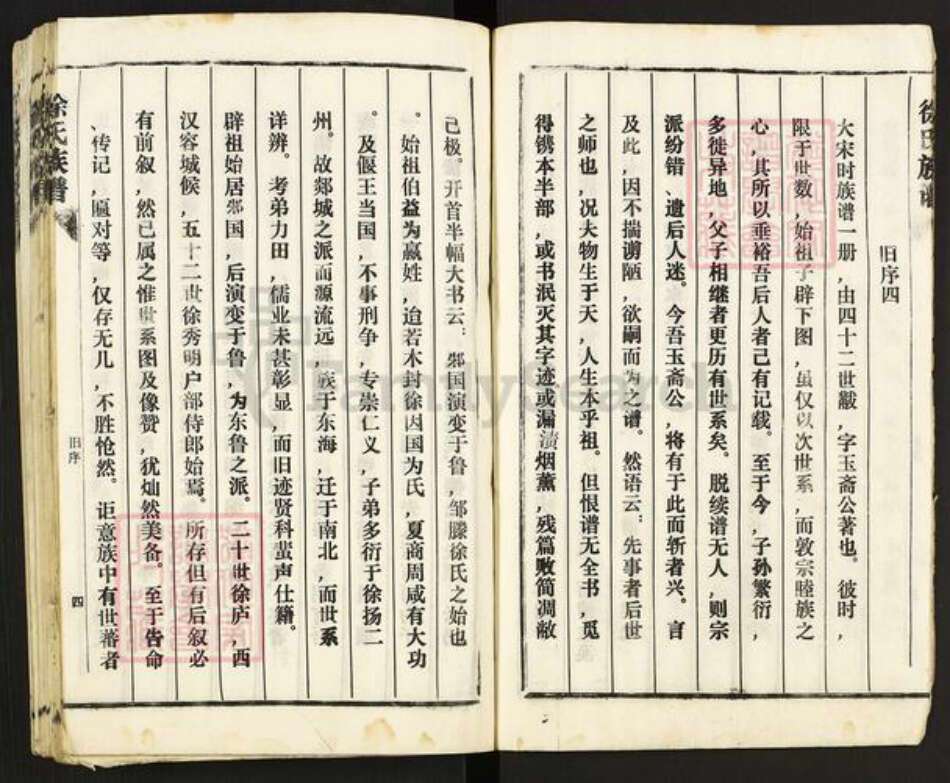 徐氏族谱
旧序四
大宋时族谱一册，由四十二世黻，字玉斋公著也。彼时，
限于世数，始祖子辟下图，虽仅以次世系，而敦宗睦族之
心，其所以垂裕吾后人者己有记载。至于今，子孙繁衍，
多徙异地，父子相继者更历有世系矣。脱续谱无人，则宗
派纷错、遗后人迷。今吾玉斋公，将有于此而斩者兴。言
及此，因不揣谫陋，欲嗣而为之谱。然语云：先事者后世
之师也，况夫物生于天，人生本乎祖。但恨谱无全书，觅
得镌本半部，或书泯灭其字迹或漏渍烟薰，残篇败简凋敝
己极。开首半幅大书云：邾国演变于鲁，邹滕徐氏之始也
。始祖伯益为嬴姓，迨若木封徐因国为氏，夏商周咸有大功
。及偃王当国，不事刑争，专崇仁义，子弟多衍于徐扬二
州。故郯城之派而源流远，族于东海，迁于南北，而世系
详辨。考弟力田，儒业未甚彰显，而旧迹贤科蜚声仕籍。
辟祖始居邾国，后演变于鲁，为东鲁之派。二十世徐庐，西
汉容城候，五十二世徐秀明户部侍郎始焉。所存但有后叙必
有前叙，然已属之惟世系图及像赞，犹灿然美备。至于告命
、传记，匾对等，仅存无儿，不胜怆然。讵意族中有世蕃者
旧序
四
徐氏族谱
FamilySearch